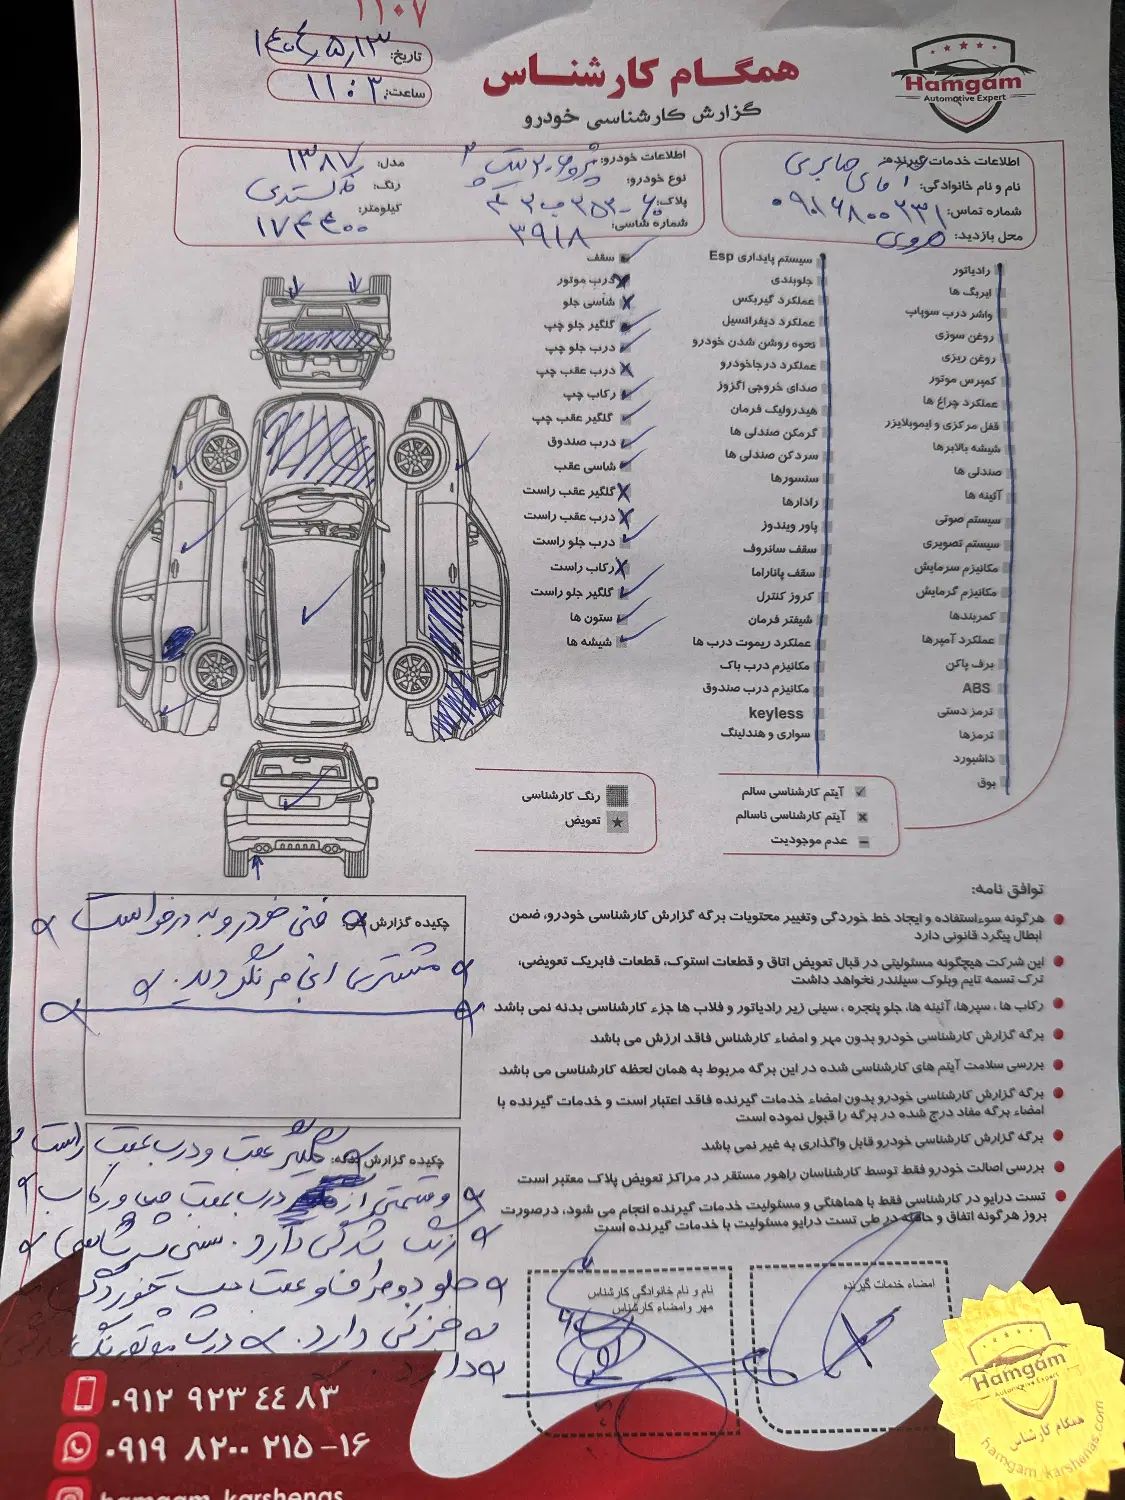 ۱۱۰۷
Hamgam
Automotive Expert
همگام کارشناس
گزارش کارشناسی خودرو
تاریخ: ۱۴۰۴٫۵٫۱۳
ساعت: ۱۱:۳۰
اطلاعات خدمات گیرنده:
نام و نام خانوادگی: آقای صابری
شماره تماس: ۰۹۰۱۶۸۰۰۲۳۱
محل بازدید: هروی
اطلاعات خودرو:
نوع خودرو: پژو ۲۰۶
پلاک:
شماره شاسی: ۳۹۱۸
مدل: ۱۳۸۷
رنگ: خاکستری
کیلومتر: ۱۷۴۴۰۰
رادیاتور
ایربگ ها
واشر درب سوپاپ
روغن سوزی
روغن ریزی
کمپرس موتور
عملکرد چراغ ها
قفل مرکزی و ایموبلایزر
شیشه بالابرها
صندلی ها
آئینه ها
سیستم صوتی
سیستم تصویری
مکانیزم سرمایش
مکانیزم گرمایش
کمربندها
عملکرد آمپرها
برف پاکن
ABS
ترمز دستی
ترمزها
داشبورد
بوق
سیستم پایداری Esp
جلوبندی
عملکرد گیربکس
عملکرد دیفرانسیل
نحوه روشن شدن خودرو
عملکرد درجاخودرو
صدای خروجی اگزوز
هیدرولیک فرمان
گرمکن صندلی ها
سردکن صندلی ها
سنسورها
رادارها
پاور ویندوز
سقف سانروف
سقف پاناراما
کروز کنترل
شیفتر فرمان
عملکرد ریموت درب ها
مکانیزم درب باک
مکانیزم درب صندوق
keyless
سواری و هندلینگ
سقف
درب موتور
شاسی جلو
گلگیر جلو چپ
درب جلو چپ
درب عقب چپ
رکاب چپ
گلگیر عقب چپ
درب صندوق
شاسی عقب
گلگیر عقب راست
درب عقب راست
درب جلو راست
رکاب راست
گلگیر جلو راست
ستون ها
شیشه ها
آیتم کارشناسی سالم
آیتم کارشناسی ناسالم
عدم موجودیت
رنگ کارشناسی
تعویض
توافق نامه:
هرگونه سوءاستفاده و ایجاد خط خوردگی وتغییر محتویات برگه گزارش کارشناسی خودرو، ضمن
ابطال پیگرد قانونی دارد
این شرکت هیچگونه مسئولیتی در قبال تعویض اتاق و قطعات استوک، قطعات فابریک تعویضی،
ترک تسمه تایم وبلوک سیلندر نخواهد داشت
رکاب ها ، سپرها، آئینه ها، جلو پنجره ، سینی زیر رادیاتور و قلاب ها جزء کارشناسی بدنه نمی باشد
برگه گزارش کارشناسی خودرو بدون مهر و امضاء کارشناس فاقد ارزش می باشد
بررسی سلامت آیتم های کارشناسی شده در این برگه مربوط به همان لحظه کارشناسی می باشد
برگه گزارش کارشناسی خودرو بدون امضاء خدمات گیرنده فاقد اعتبار است و خدمات گیرنده با
امضاء برگه مفاد درج شده در برگه را قبول نموده است
برگه گزارش کارشناسی خودرو قابل واگذاری به غیر نمی باشد
بررسی اصالت خودرو فقط توسط کارشناسان راهور مستقر در مراکز تعویض پلاک معتبر است
تست درایو در کارشناسی فقط با هماهنگی و مسئولیت خدمات گیرنده انجام می شود، درصورت
بروز هرگونه اتفاق و حادثه در طی تست درایو مسئولیت با خدمات گیرنده است
چکیده گزارش فنی: فنی خودرو به درخواست
مشتری انجام نگردید.
چکیده گزارش بدنه: گلگیر عقب و درب عقب راست
و قسمتی از درب عقب چپ و رکاب
رنگ شدگی دارد. سینی
جلو دو طرف و عقب چپ خوردگی
جزئی دارد. درب موتور رنگ
دارد.
نام و نام خانوادگی کارشناس
مهر وامضاء کارشناس
امضاء خدمات گیرنده
۰۹۱۲ ۹۲۳ ۴۴ ۸۳
۰۹۱۹ ۸۲۰۰ ۲۱۵-۱۶
hamgam_karshenas
Hamgam
Automotive Expert
همگام کارشناس
hamgam_karshenas.com